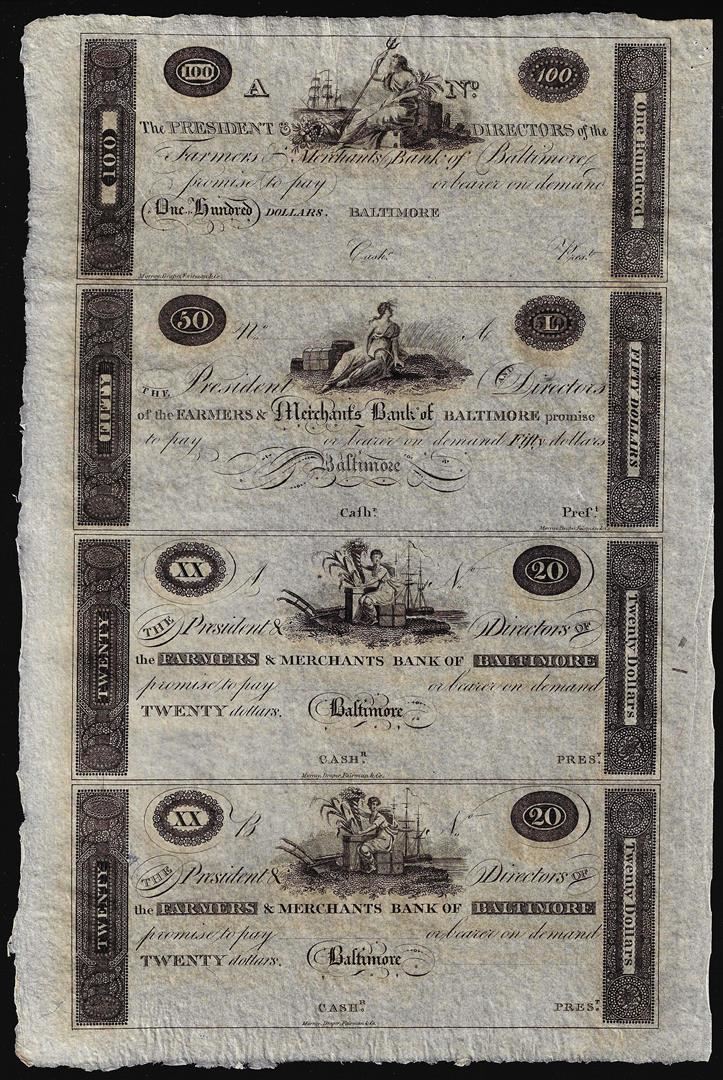 100 A No. 100
100
One Hundred
The PRESIDENT & DIRECTORS of the
Farmers & Merchants Bank of Baltimore
promise to pay or bearer on demand
One Hundred DOLLARS. BALTIMORE
Cashr. Prest.
Murray, Draper, Fairman & Co.
50 No. A 50
FIFTY
FIFTY DOLLARS
THE President AND Directors
of the FARMERS & Merchants Bank of BALTIMORE promise
to pay or bearer on demand Fifty dollars
Baltimore
Caſhr. Preſt.
Murray, Draper, Fairman & Co.
XX A No. 20
TWENTY
Twenty Dollars
THE President & Directors OF
the FARMERS & MERCHANTS BANK OF BALTIMORE
promise to pay or bearer on demand
TWENTY dollars. Baltimore
CASHR. PREST.
Murray, Draper, Fairman & Co.
XX B No. 20
TWENTY
Twenty Dollars
THE President & Directors OF
the FARMERS & MERCHANTS BANK OF BALTIMORE
promise to pay or bearer on demand
TWENTY dollars. Baltimore
CASHR. PREST.
Murray, Draper, Fairman & Co.